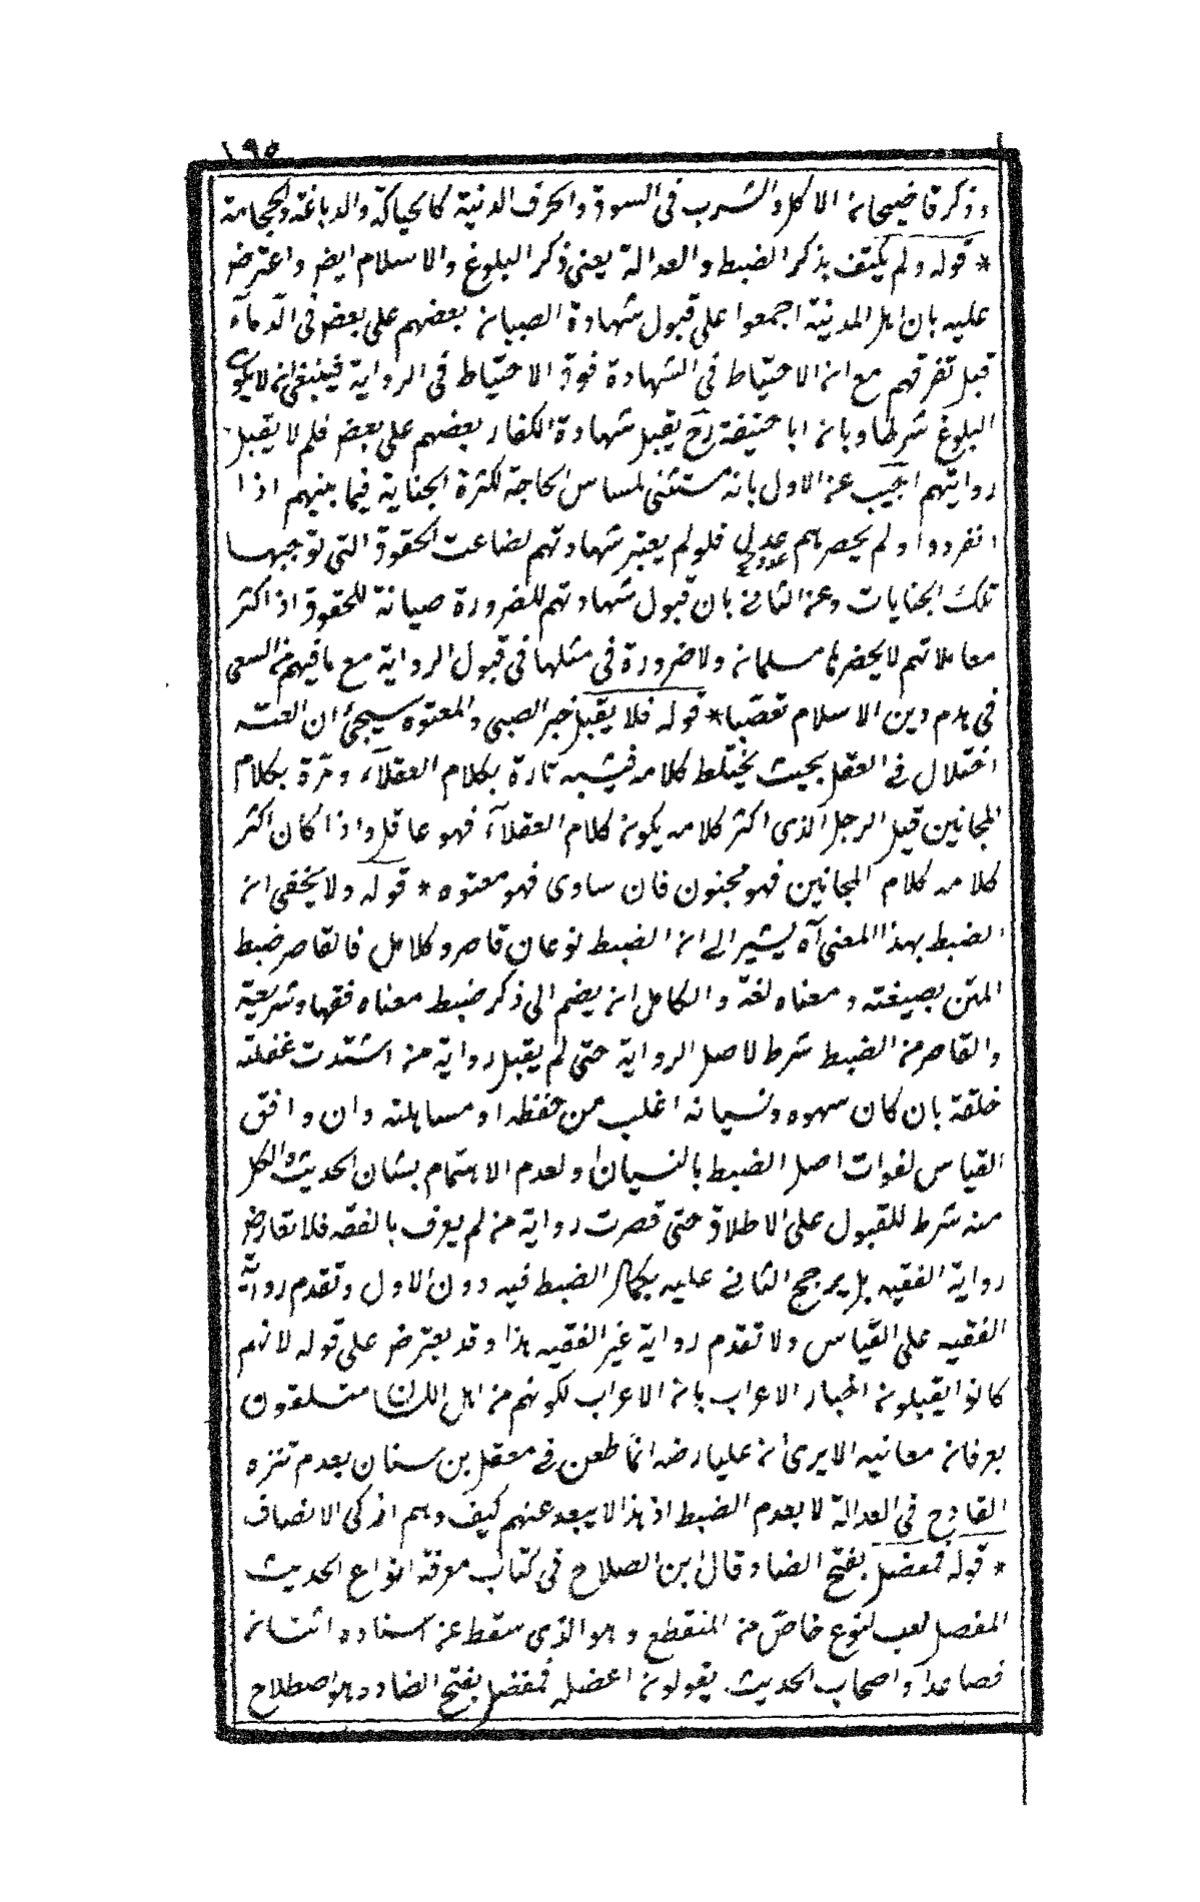 ١٩٥
وذكر قاضيخان الاكل والشرب فى السوق والحرف الدنية كالحياكة والدباغة والحجامة
* قوله ولم يكتف بذكر الضبط والعدالة يعنى ذكر البلوغ والاسلام ايض واعترض
عليه بان اهل المدينة اجمعوا على قبول شهادة الصبيان بعضهم على بعض فى الدّمآء
قبل تفرقهم مع ان الاحتياط فى الشهادة فوق الاحتياط فى الرواية فينبغى ان لا يكون
البلوغ شرطا وبان ابا حنيفة رح يقبل شهادة الكفار بعضهم على بعض فلم لا يقبل
روايتهم اجيب عن الاول بانه مستثنى لمساس الحاجة لكثرة الجناية فيما بينهم اذا
انفردوا ولم يحضرهم عدول فلو لم يعتبر شهادتهم لضاعت الحقوق التى توجبها
تلك الجنايات وعن الثانى بان قبول شهادتهم للضرورة صيانة للحقوق اذ اكثر
معاملاتهم لا يحضرها مسلمان ولا ضرورة فى مثلها فى قبول الرواية مع ما فيهم من السعى
فى هدم دين الاسلام تعصّبا * قوله فلا يقبل خبر الصبى والمعتوه سيجئ ان العته
اختلال فى العقل بحيث يختلط كلامه فيشبه تارة بكلام العقلآء ومرّة بكلام
المجانين قيل الرجل الذى اكثر كلامه يكون كلام العقلآء فهو عاقل واذا كان اكثر
كلامه كلام المجانين فهو مجنون فان ساوى فهو معتوه * قوله ولا يخفى ان
الضبط بهذا المعنى آه يشير الى ان الضبط نوعان قاصر وكامل فالقاصر ضبط
المتن بصيغته ومعناه لغة والكامل ان يضم الى ذكر ضبط معناه فقها وشريعة
والقاصر من الضبط شرط لاصل الرواية حتى لم يقبل رواية من اشتدت غفلته
خلقة بان كان سهوه ونسيانه اغلب من حفظه او مساهلته وان وافق
القياس لفوات اصل الضبط بالنسيان او لعدم الاهتمام بشان الحديث والكل
منه شرط للقبول على الاطلاق حتى قصرت رواية من لم يعرف بالفقه فلا تعارض
رواية الفقيه بل يرجح الثانى عليه بكمال الضبط فيه دون الاول وتقدم رواية
الفقيه على القياس ولا تقدم رواية غير الفقيه هذا وقد يعترض على قوله لانهم
كانوا يقبلون اخبار الاعراب بان الاعراب لكونهم من اهل اللسان متعلقون
بعرفان معانيه الا يرى ان عليا رضه انما طعن فى معقل بن سنان بعدم تنزه
القادح فى العدالة لا بعدم الضبط اذ هذا لا يبعد عنهم كيف وهم اذكى الانصاف
* قوله فمعضل بفتح الضاد قال ابن الصلاح فى كتاب معرفة انواع الحديث
المعضل لقب لنوع خاصّ من المنقطع وهو الذى سقط عن اسناده اثنان
فصاعدا واصحاب الحديث يقولون اعضله فمعضل بفتح الضاد وهو اصطلاح